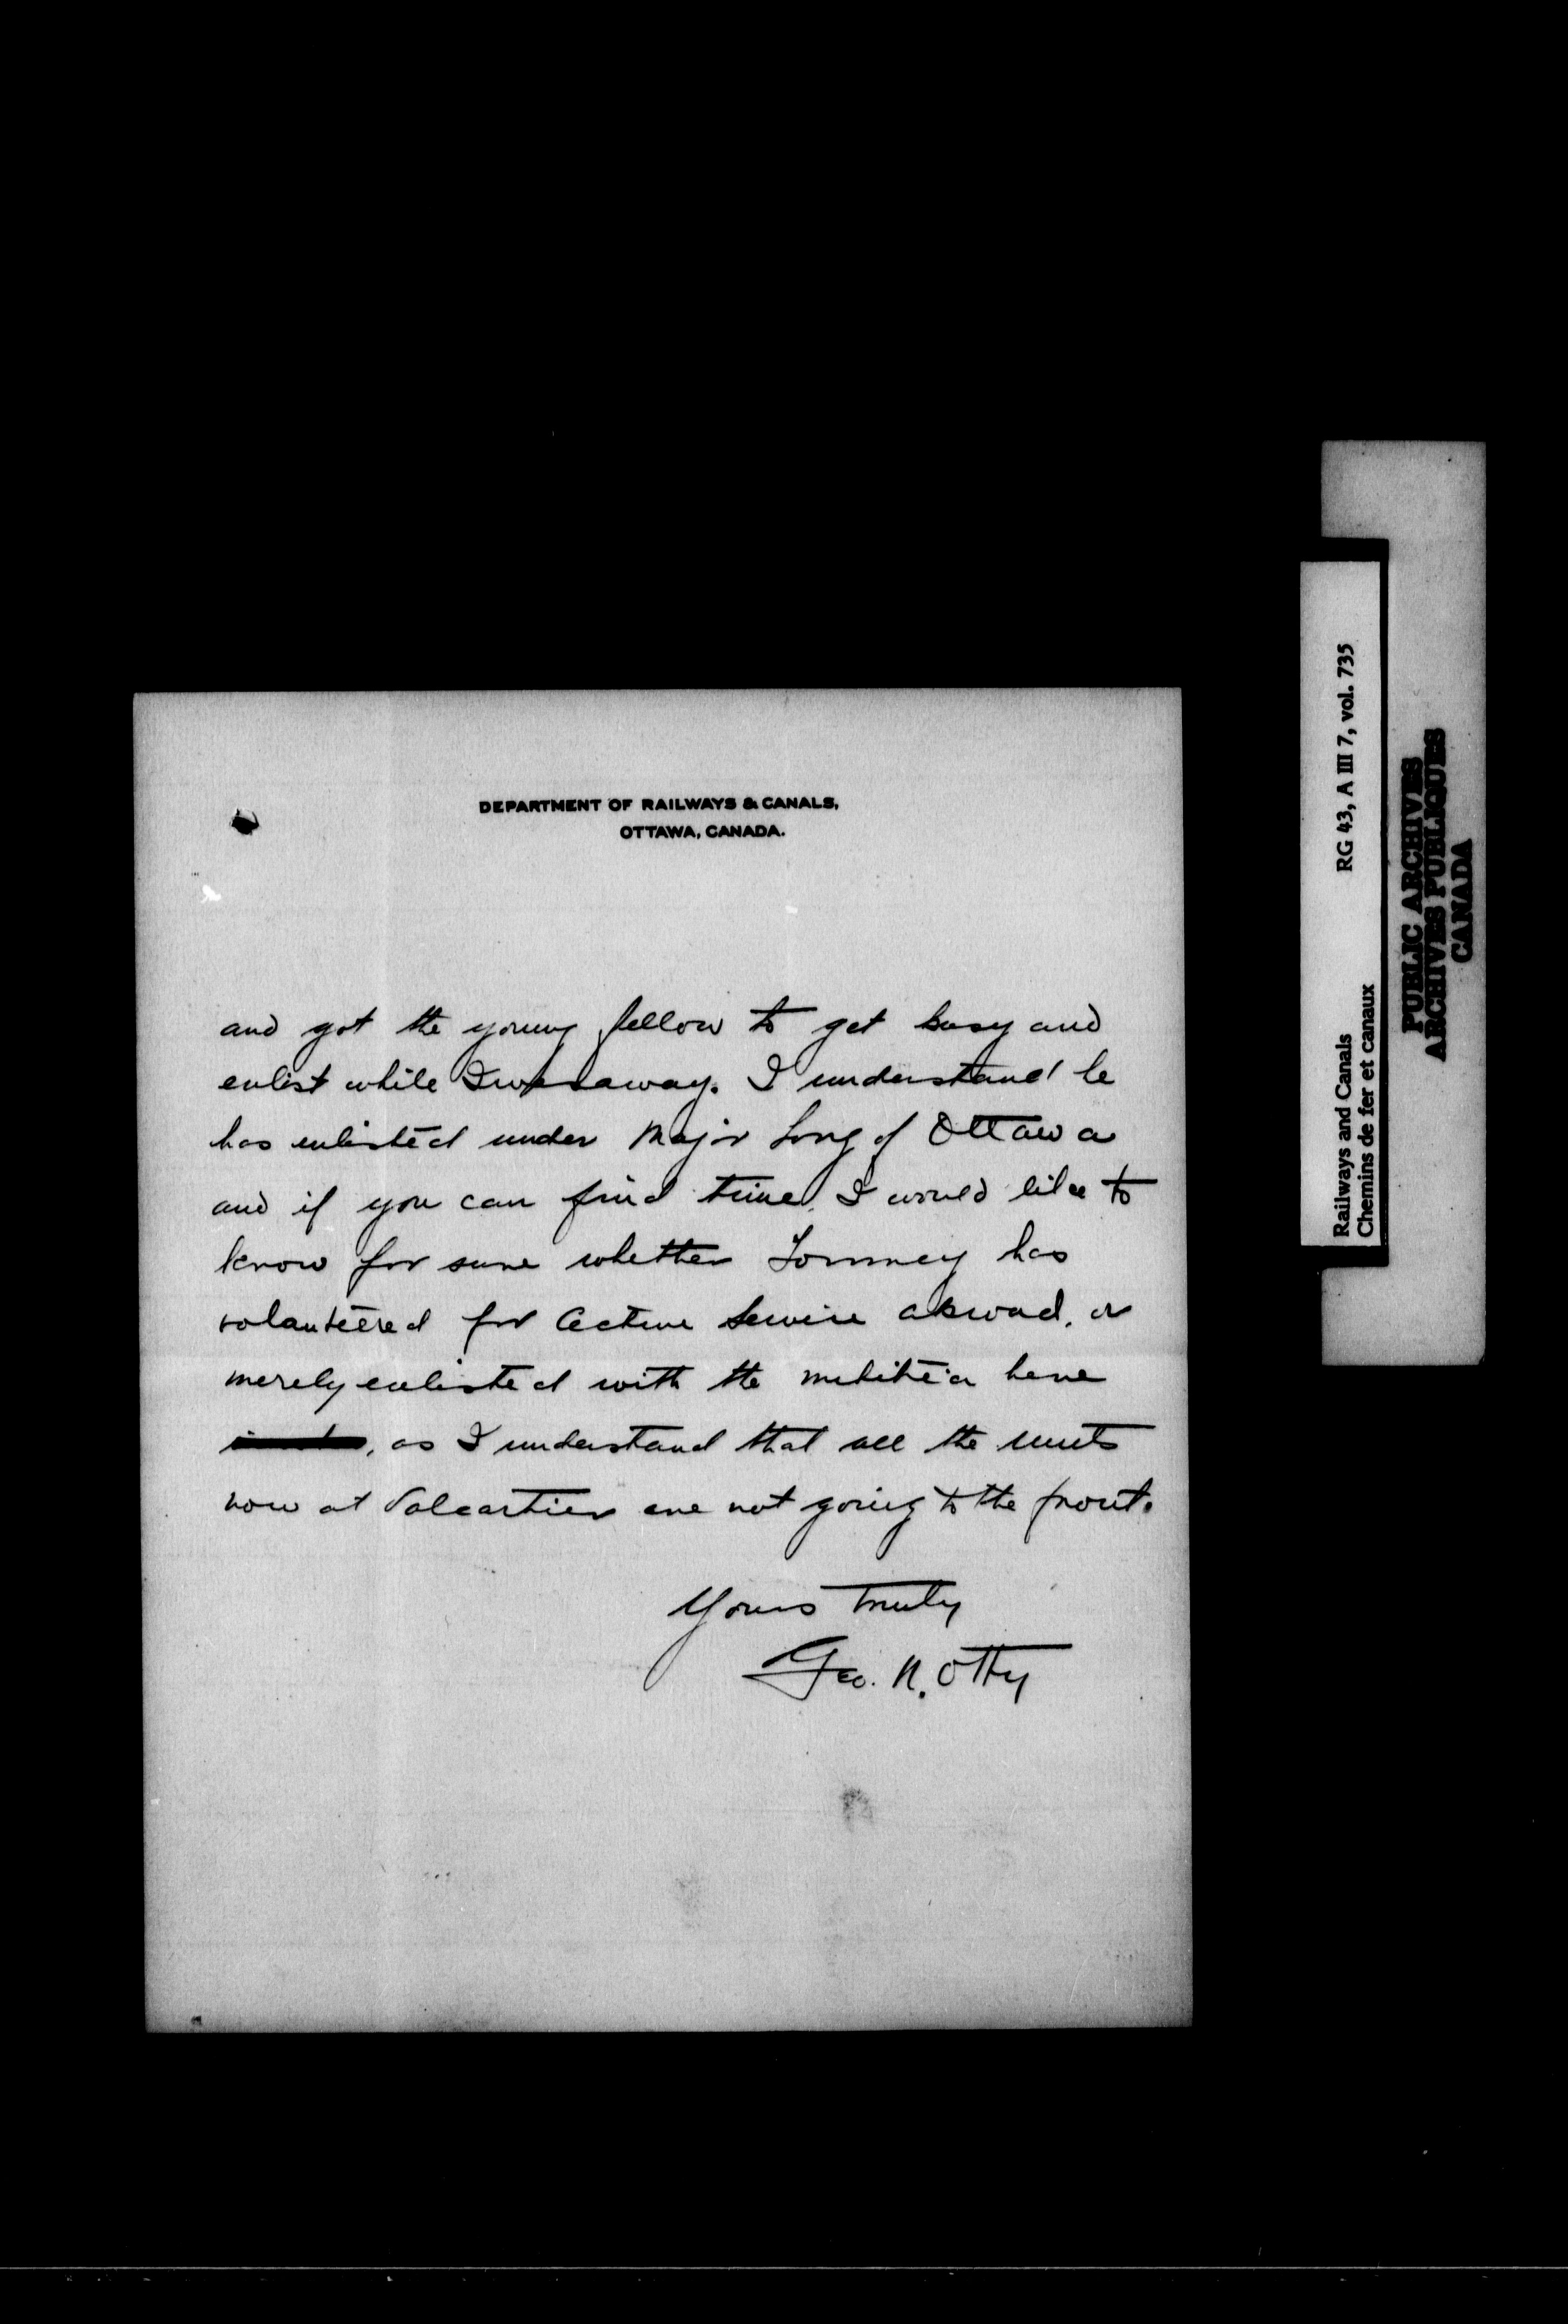 DEPARTMENT OF RAILWAYS & CANALS,
OTTAWA, CANADA.
and got the young fellow to get busy and
enlist while I was away. I understand he
has enlisted under Major Long of Ottawa
and if you can find time, I would like to
know for sure whether Tommey has
volunteered for Active Service abroad, or
merely enlisted with the militia here
, as I understand that all the units
now at Valcartier are not going to the front.
Yours truly
Geo. N. Otty
Railways and Canals RG 43, A III 7, vol. 735
Chemins de fer et canaux
PUBLIC ARCHIVES
ARCHIVES PUBLIQUES
CANADA